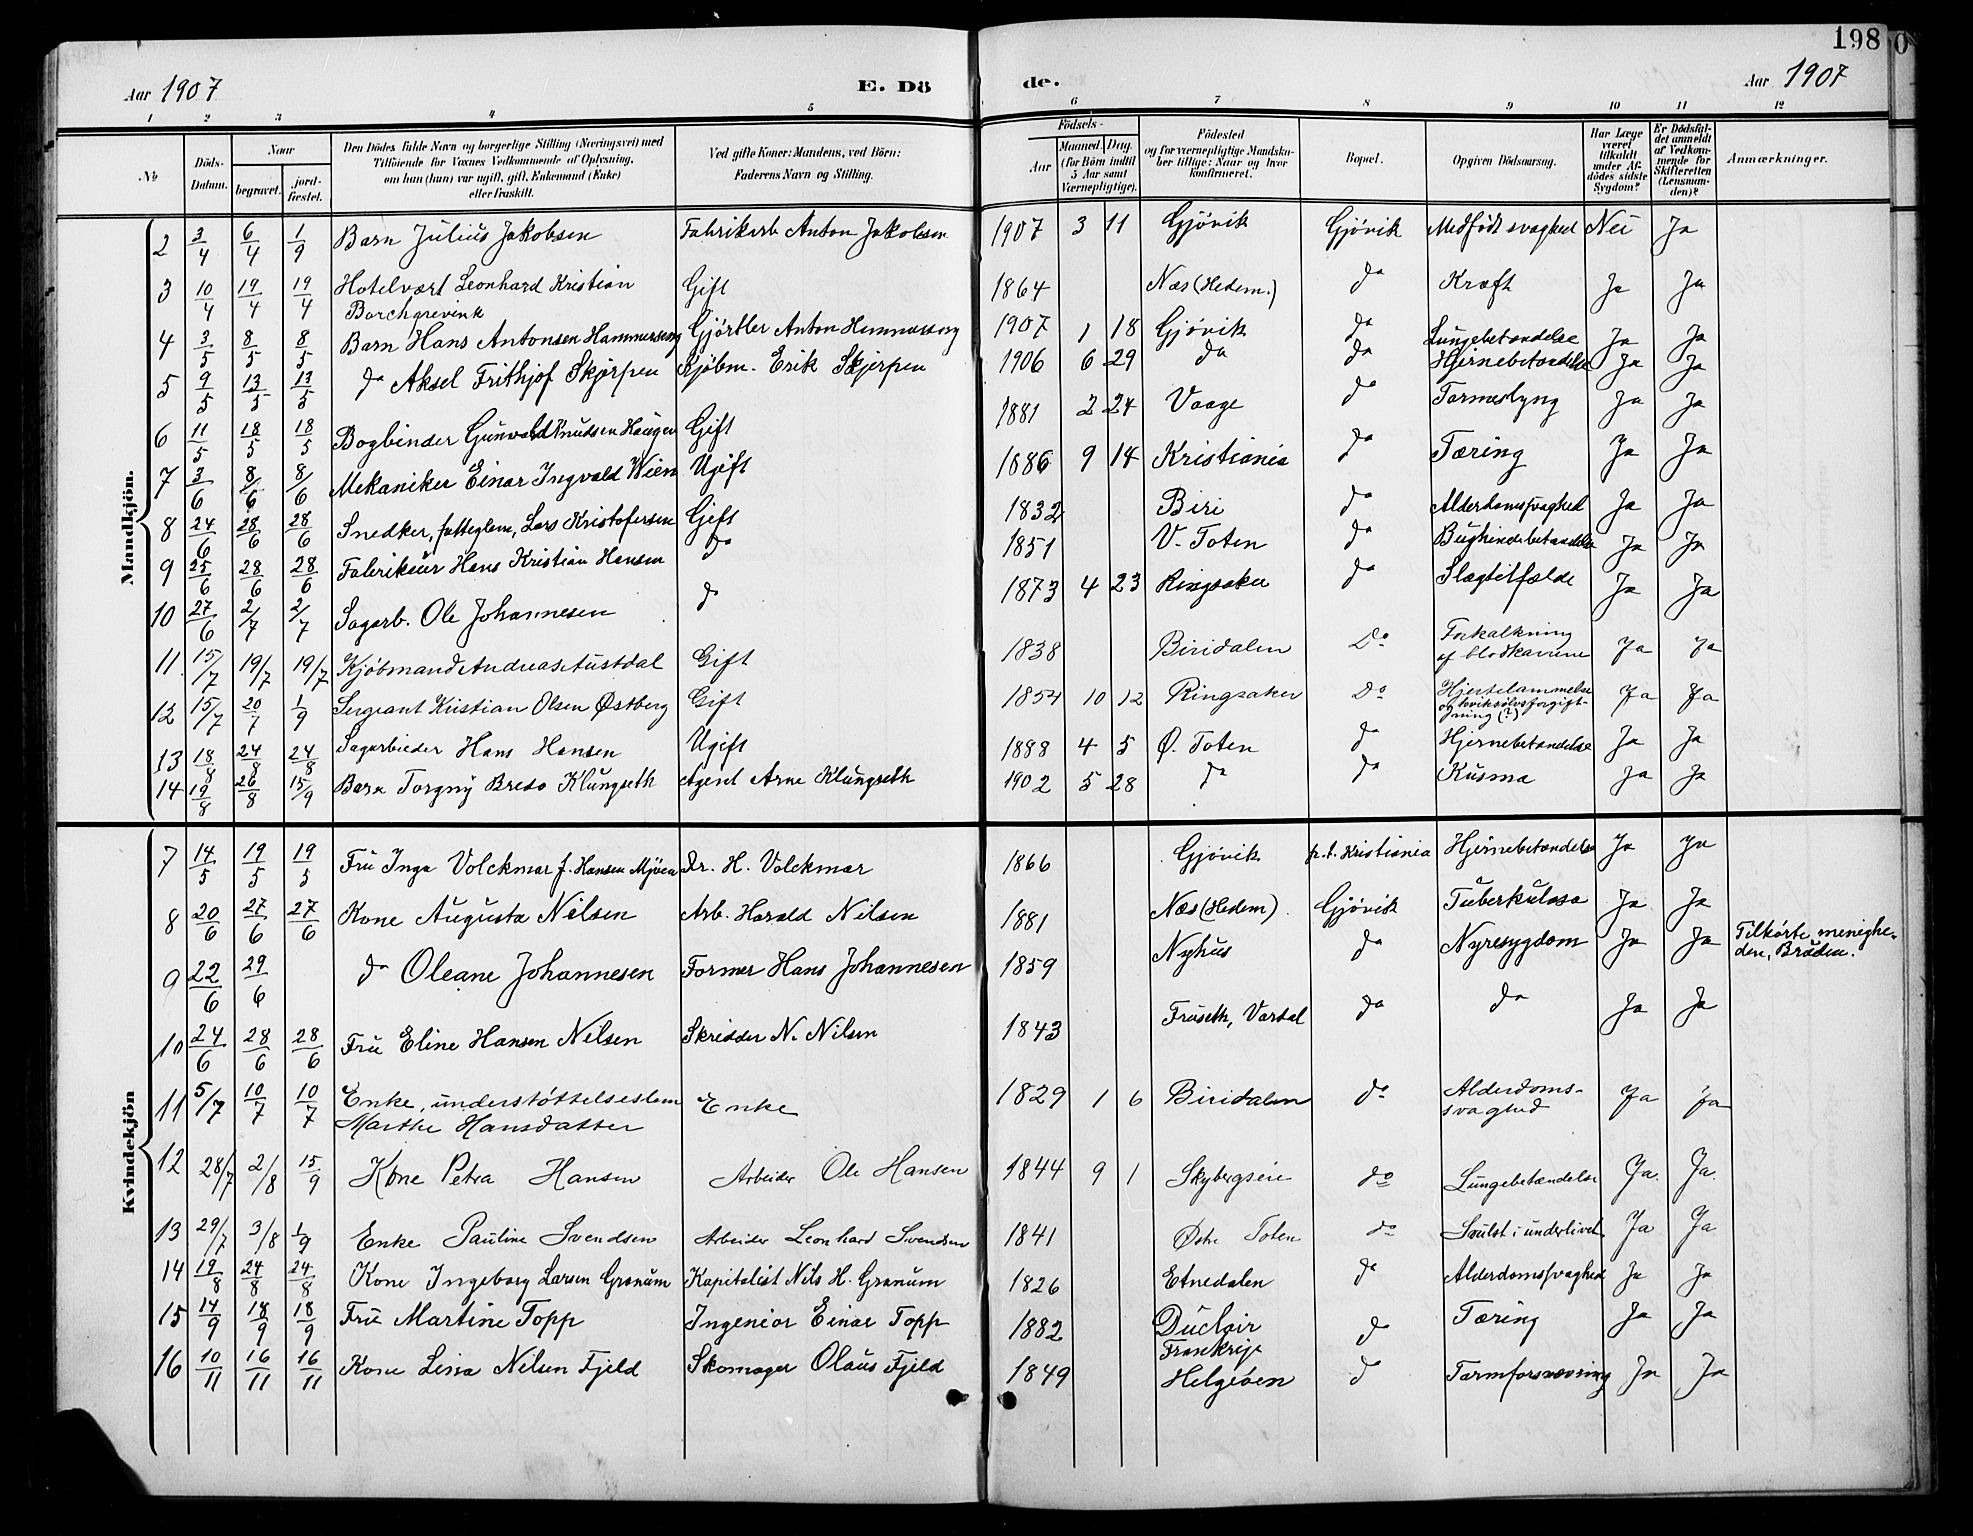 198
0
Aar 1907 E. Dö de. Aar 1907
1 2 3 4 5 6 7 8 9 10 11 12
No
Döds-Datum.
Naar
begravet.
jord-fæstet.
Den Dödes fulde Navn og borgerlige Stilling (Næringsvei) med
Tilföiende for Voxnes Vedkommende af Oplysning,
om han (hun) var ugift, gift, Enkemand (Enke)
eller fraskilt.
Ved gifte Koner: Mandens, ved Börn:
Faderens Navn og Stilling.
Födsels-
Aar
Maaned. Dag.
(for Börn indtil
5 Aar samt
Værnepligtige).
Födested
og for værnepligtige Mandska-
ber tillige: Naar og hvor
konfirmeret.
Bopæl.
Opgiven Dödsaarsag.
Har Læge
været
tilkaldt
under Af-
dödes sidste
Sygdom?
Er Dödsfal-
det anmeldt
af Vedkom-
mende for
Skifteretten
(Lensman-
den)?
Anmærkninger.
Mandkjön.
2 3/4 6/4 1/9 Barn Julius Jakobsen Fabrikarb Anton Jakobsen 1907 3 11 Gjövik Gjövik Medfödt svaghed Nei Ja
3 10/4 19/4 19/4 Hotelvært Leonhard Kristian Gift 1864 Næs (Hedem.) do Kræft Ja Ja
Borchgrevink
4 3/5 8/5 8/5 Barn Hans Antonsen Hammerseng Gjörtler Anton 1907 1 18 Gjövik do Lungebetændelse Ja Ja
5 9/5 13/5 13/5 do Aksel Frithjof Skjerpen Kjöbm. Erik Skjerpen 1906 6 29 do do Hjernebetændelse Ja Ja
6 11/5 18/5 18/5 Bogbinder Gunvald Knudsen Haugen Gift 1881 2 24 Vaage do Tarmeslyng Ja Ja
7 3/6 8/6 8/6 Mekaniker Einar Ingvald Wien Ugift 1886 9 14 Kristiania do Tæring Ja Ja
8 24/6 28/6 28/6 Snedker, fattiglem, Lars Kristofersen Gift 1832 Biri do Alderdomssvaghed Ja Ja
9 25/6 28/6 28/6 Fabrikeur Hans Kristian Hansen do 1851 V. Toten do Bughindebetændelse Ja Ja
10 27/6 2/7 2/7 Sagarb. Ole Johannesen do 1873 4 23 Ringsaker do Slagtilfælde Ja Ja
11 15/7 19/7 19/7 Kjöbmand Andreas Austdal Gift 1838 Biridalen Do Forkalkning Ja Ja
af blodkarrene
12 15/7 20/7 1/9 Sergeant Kristian Olsen Østberg Gift 1854 10 12 Ringsaker Do Hjertelammelse Ja Ja
og kviksölvsforgift-
ning (?)
13 18/8 24/8 24/8 Sagarbieder Hans Hansen Ugift 1888 4 5 Ø. Toten do Hjernebetændelse Ja Ja
14 19/8 26/8 15/9 Barn Torgny Bredo Klungseth Agent Arne Klungseth 1902 5 28 do do Kusma Ja Ja
Kvindekjön
7 14/5 19/5 19/5 Fru Inga Volckmar f. Hansen Mjöen Dr. H. Volckmar 1866 Gjövik p.t. Kristiania Hjernebetændelse Ja Ja
8 20/6 27/6 27/6 Kone Augusta Nilsen Arb. Harald Nilsen 1881 Næs (Hedem) Gjövik Tuberkulose Ja Ja
9 22/6 29/6 do Oleane Johannesen Former Hans Johannesen 1859 Nyhus do Nyresygdom Ja Ja Tilhörte menighe-
den, Bruden.
10 24/6 28/6 28/6 Fru Eline Hansen Nilsen Skrædder N. Nilsen 1843 Fruseth, Vardal do do Ja Ja
11 5/7 10/7 10/7 Enke, understöttelseslem Enke 1829 1 6 Biridalen do Alderdoms- Ja Ja
Marthe Hansdatter svaghed
12 28/7 2/8 15/9 Kone Petra Hansen Arbeider Ole Hansen 1844 9 1 Skybergseie do Lungebetændelse Ja. Ja.
13 29/7 3/8 1/9 Enke Pauline Svendsen Arbeider Leonhard Svendsen 1841 Østre Toten do Svulst i underlivet Ja Ja
14 19/8 24/8 24/8 Kone Ingeborg Larsen Granum Kapitalist Nils H. Granum 1826 Etnedalen do Alderdomssvaghed Ja Ja
15 14/9 18/9 18/9 Fru Martine Topp Ingeniör Einar Topp 1882 Duclair do Tæring Ja Ja
Frankrige
16 10/11 16/11 16/11 Kone Lina Nilsen Fjeld Skomager Olaus Fjeld 1849 Helgöen do Tarmforsnævring Ja Ja